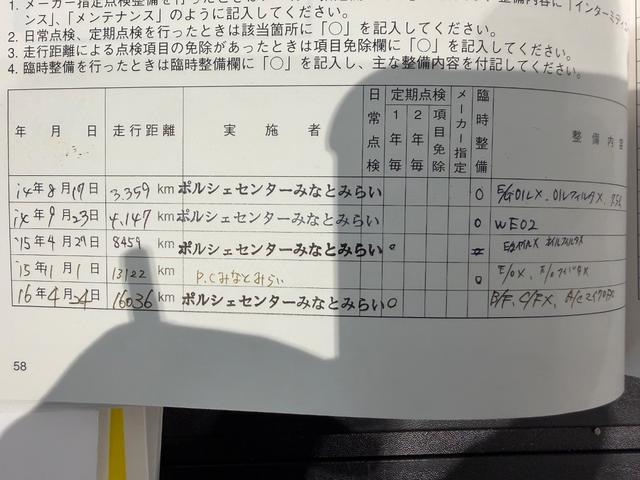 1. メーカー指定点検整備を行ったときは
ンス」、「メンテナンス」のように記入してください。
2. 日常点検、定期点検を行ったときは該当箇所に「○」を記入してください。
3. 走行距離による点検項目の免除があったときは項目免除欄に「○」を記入してください。
4. 臨時整備を行ったときは臨時整備欄に「○」を記入し、主な整備内容を付記してください。
年 月 日 走行距離 実施者 日常点検 定期点検 1年毎 2年毎 項目免除 メーカー指定 臨時整備 整備内容
14年8月17日 3,359 km ポルシェセンターみなとみらい ○ E/GOILX、OILフィルタX、
14年9月23日 4,147 km ポルシェセンターみなとみらい ○ WE02
'15年4月29日 8459 km ポルシェセンターみなとみらい ○
'15年11月1日 13122 km P.Cみなとみらい ○ E/OX、
16年4月24日 16036 km ポルシェセンターみなとみらい ○ B/F、C/FX、
58